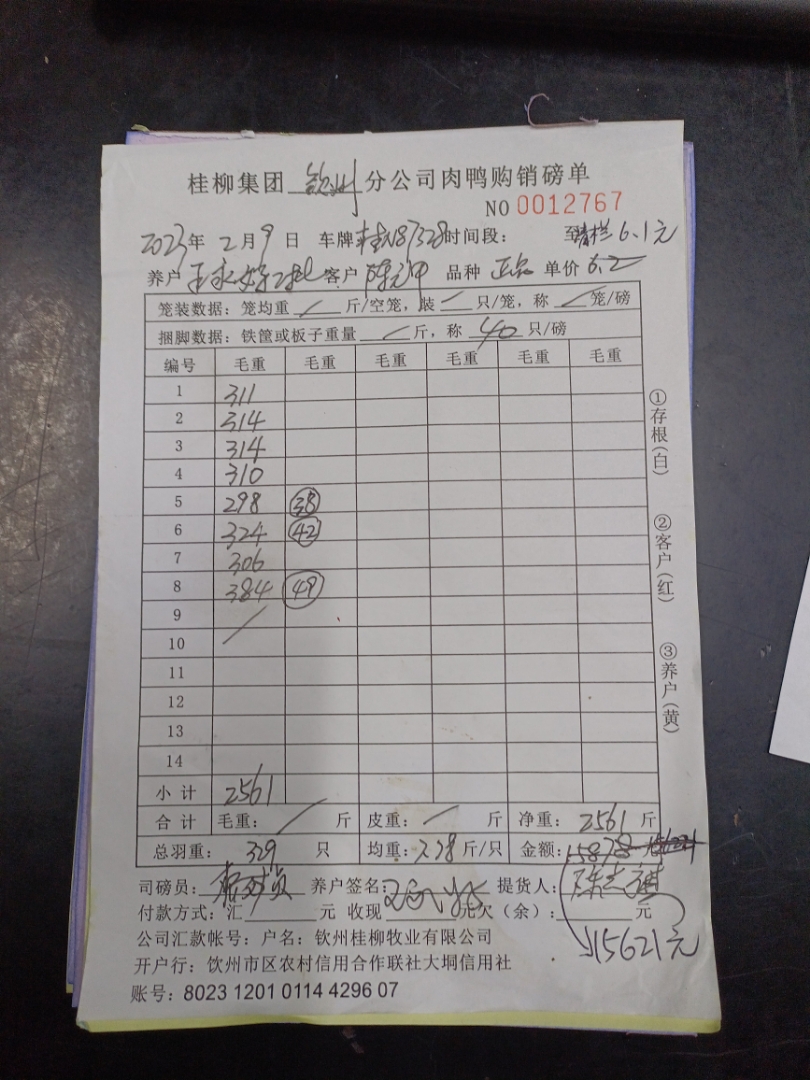 桂柳集团 钦州 分公司肉鸭购销磅单
NO 0012767
2023年 2月9日 车牌 桂N87328 时间段： 至 清栏 6.1元
养户 客户 陈元中 品种 单价 6.2
笼装数据：笼均重 / 斤/空笼，装 / 只/笼，称 / 笼/磅
捆脚数据：铁筐或板子重量 / 斤，称 40 只/磅
编号 毛重 毛重 毛重 毛重 毛重 毛重
1 311
2 314
3 314
4 310
5 298 38
6 324 42
7 306
8 384 49
9
10 /
11
12
13
14
小计 2561
合计 毛重： / 斤 皮重： / 斤 净重： 2561 斤
总羽重： 329 只 均重： 7.78 斤/只 金额： 15878
司磅员： 养户签名： 提货人：
付款方式：汇 元 收现 元欠（余）： 元
15621元
公司汇款帐号：户名：钦州桂柳牧业有限公司
开户行：饮州市区农村信用合作联社大垌信用社
账号：8023 1201 0114 4296 07
①存根（白）
②客户（红）
③养户（黄）